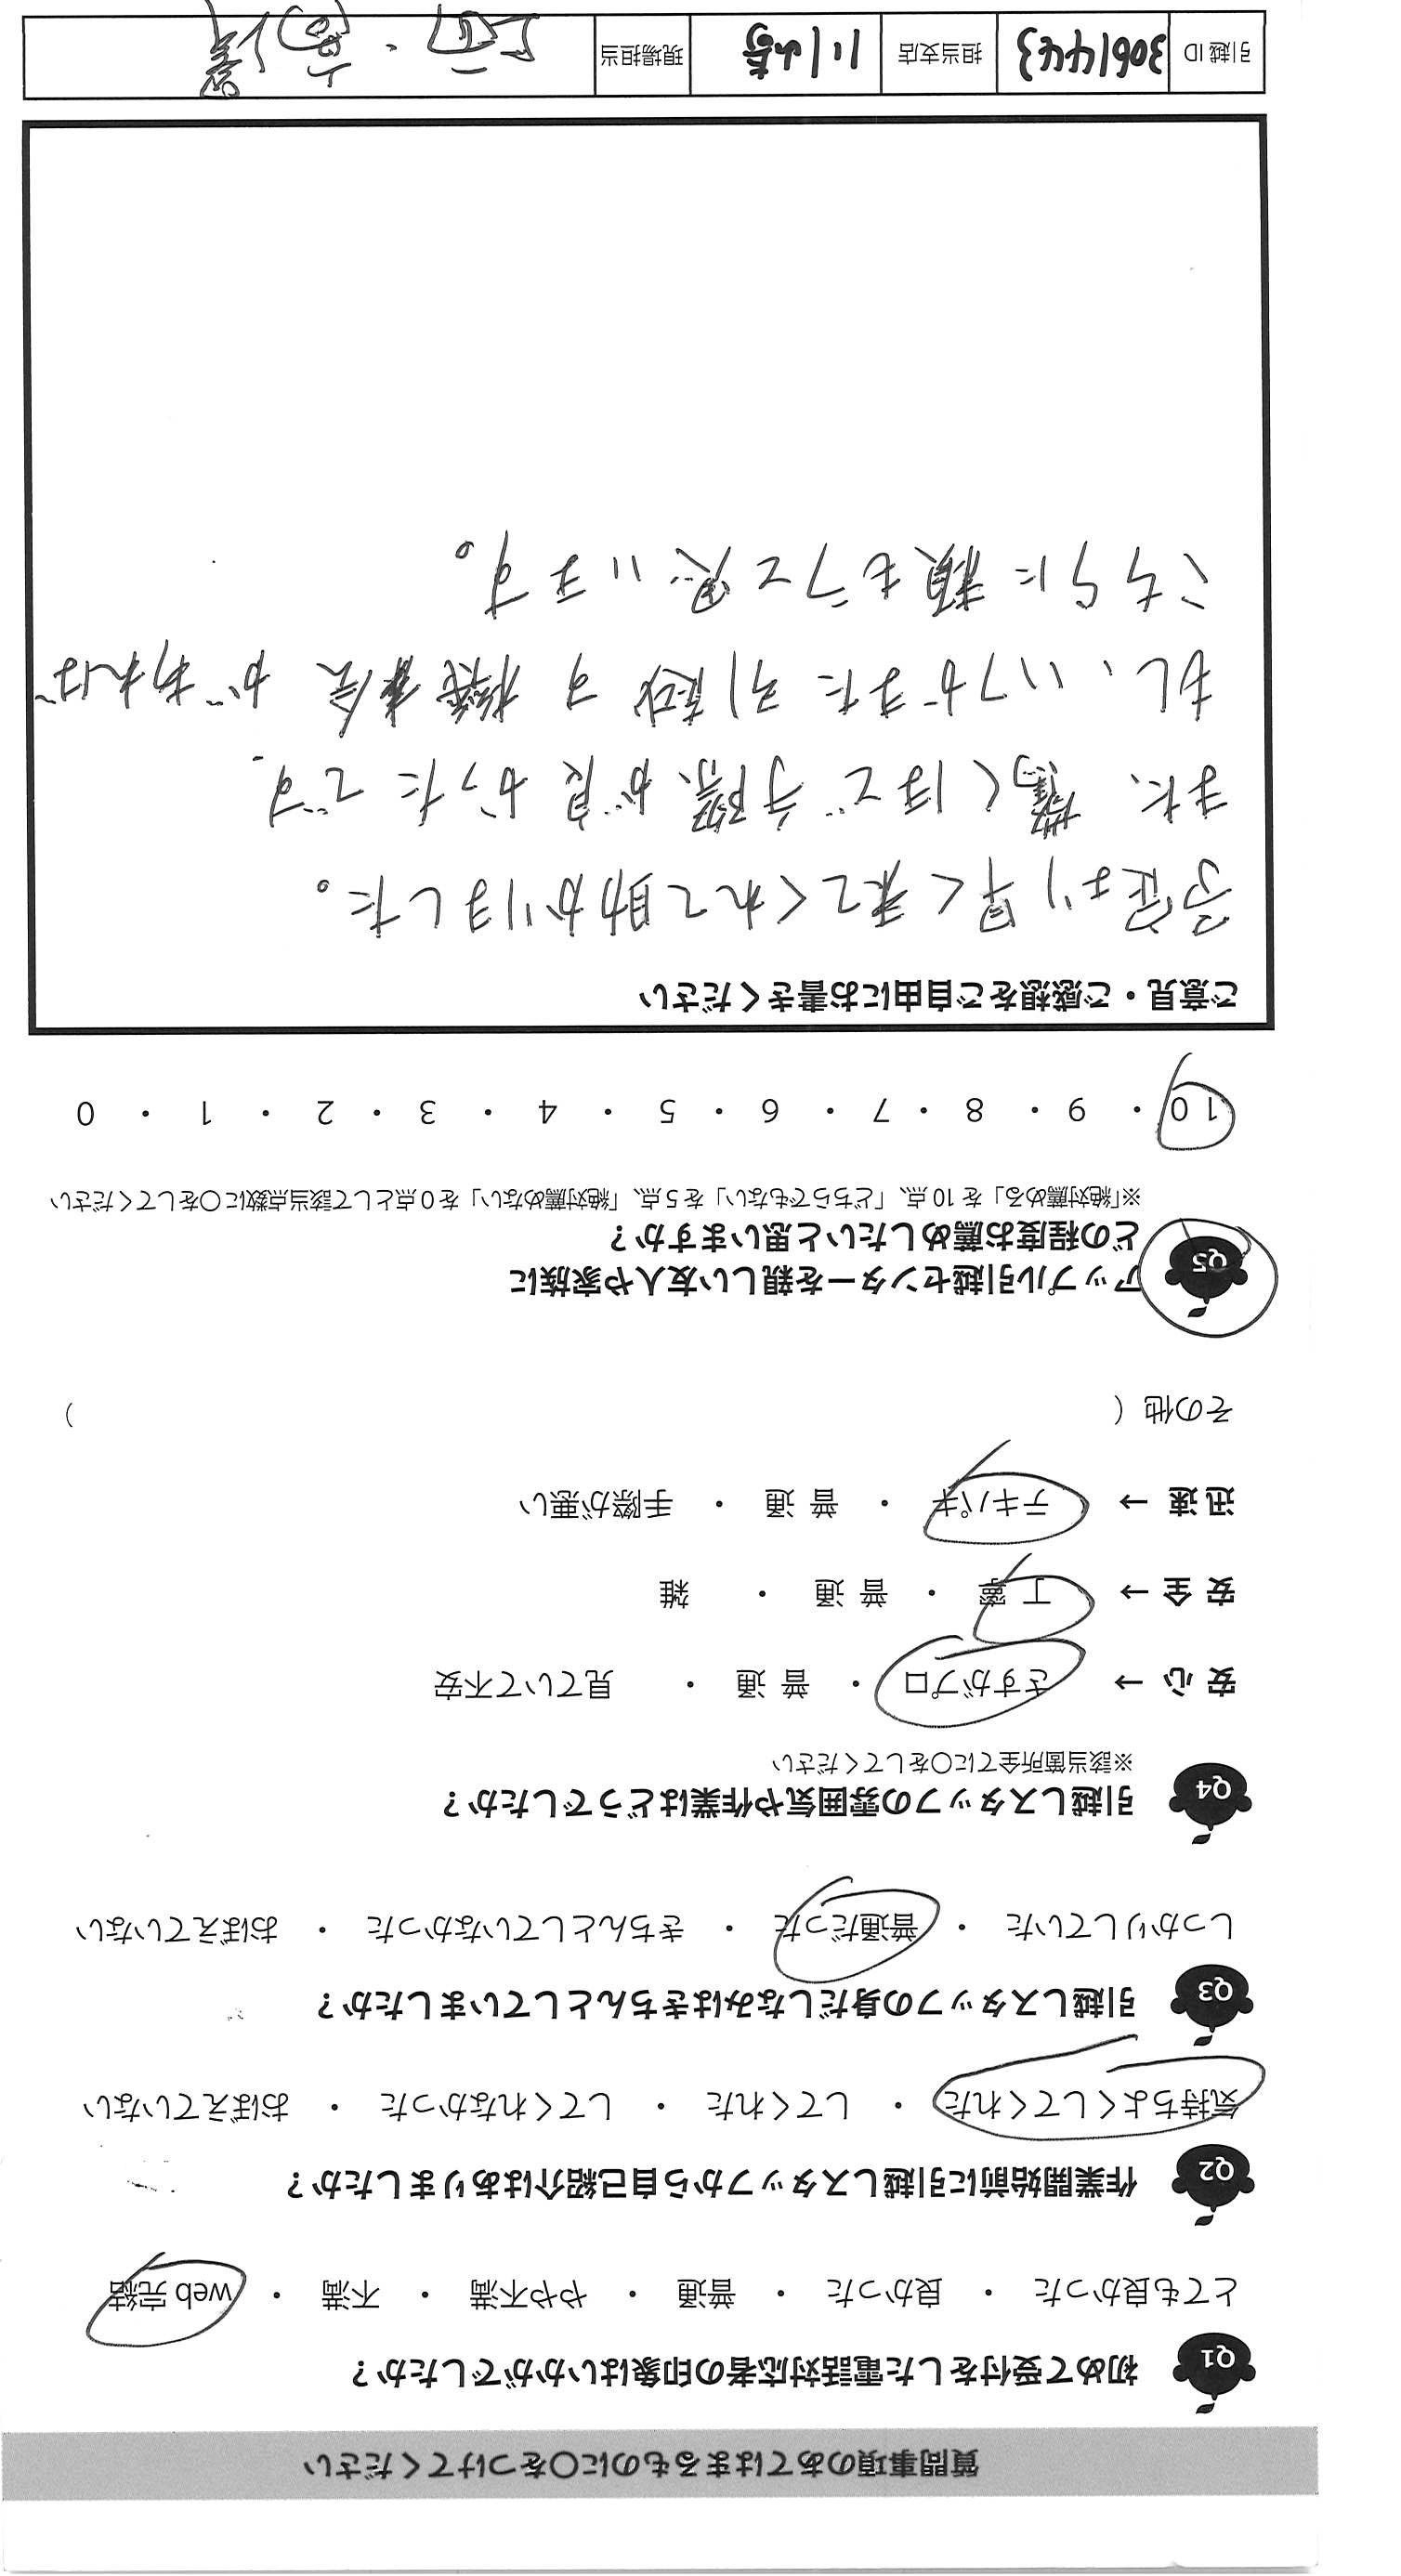 質問事項のあてはまるものに〇をつけてください
Q1 初めて受付をした電話対応者の印象はいかがでしたか？
とても良かった ・ 良かった ・ 普通 ・ やや不満 ・ 不満 ・ web 完結
Q2 作業開始前に引越しスタッフから自己紹介はありましたか？
気持ちよくしてくれた ・ してくれた ・ してくれなかった ・ おぼえていない
Q3 引越しスタッフの身だしなみはきちんとしていましたか？
しっかりしていた ・ 普通だった ・ きちんとしていなかった ・ おぼえていない
Q4 引越しスタッフの雰囲気や作業はどうでしたか？
※該当箇所全てに〇をしてください
安 心 → さすがプロ ・ 普 通 ・ 見ていて不安
安 全 → 丁 寧 ・ 普 通 ・ 雑
迅 速 → テキパキ ・ 普 通 ・ 手際が悪い
その他（ ）
Q5 アップル引越センターを親しい友人や家族に
どの程度お薦めしたいと思いますか？
※「絶対薦める」を 10 点、「どちらでもない」を 5 点、「絶対薦めない」を 0 点として該当点数に〇をしてください
10 ・ 9 ・ 8 ・ 7 ・ 6 ・ 5 ・ 4 ・ 3 ・ 2 ・ 1 ・ 0
ご意見・ご感想をご自由にお書きください
予定より早く来てくれて助かりました。
また、驚くほど手際が良かったです
もし、いつかまた引越す機会があれば
こちらに頼もうと思います。
引越 ID 3061443 担当支店 川崎 現場担当